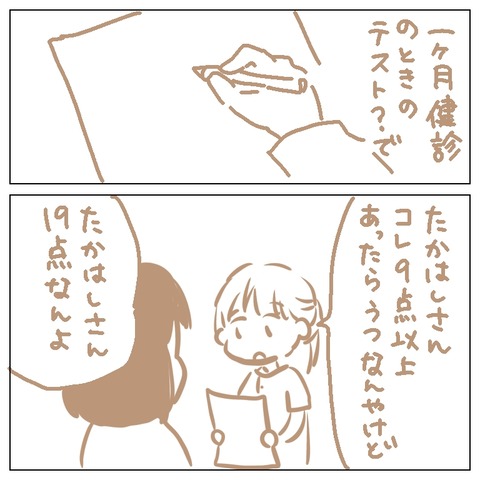 一ヶ月健診
のときの
テスト?で
たかはしさん
コレ9点以上
あったらうつなんやけど
たかはしさん
19点なんよ